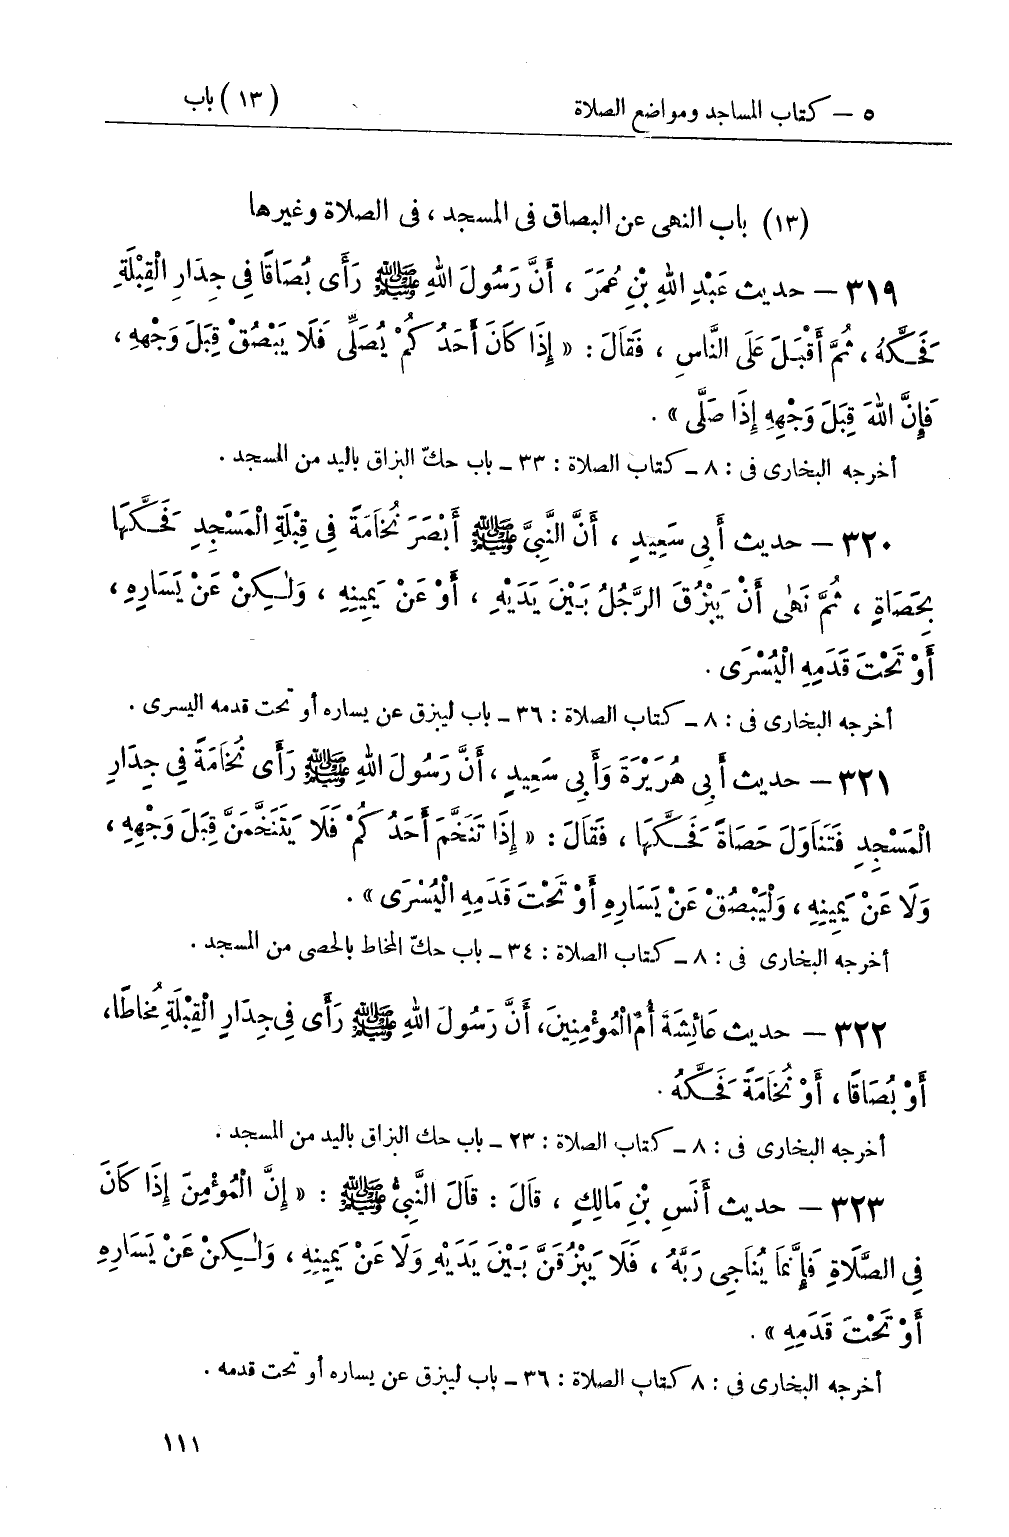 ٥ — كتاب المساجد ومواضع الصلاة (١٣) باب
(١٣) باب النهى عن البصاق فى المسجد ، فى الصلاة وغيرها
٣١٩ — حديث عَبْدِ اللهِ بْنِ عُمَرَ ، أَنَّ رَسُولَ اللهِ ﷺ رَأَى بُصَاقًا فِى جِدَارِ الْقِبْلَةِ
فَحَكَّهُ ، ثُمَّ أَقْبَلَ عَلَى النَّاسِ ، فَقَالَ : « إِذَا كَانَ أَحَدُكُمْ يُصَلِّى فَلَا يَبْصُقْ قِبَلَ وَجْهِهِ ،
فَإِنَّ اللهَ قِبَلَ وَجْهِهِ إِذَا صَلَّى » .
أخرجه البخارى فى : ٨ ـ كتاب الصلاة : ٣٣ ـ باب حكّ البزاق باليد من المسجد .
٣٢٠ — حديث أَبِى سَعِيدٍ ، أَنَّ النَّبِىَّ ﷺ أَبْصَرَ نُخَامَةً فِى قِبْلَةِ الْمَسْجِدِ فَحَكَّهَا
بِحَصَاةٍ ، ثُمَّ نَهَى أَنْ يَبْزُقَ الرَّجُلُ بَيْنَ يَدَيْهِ ، أَوْ عَنْ يَمِينِهِ ، وَلٰكِنْ عَنْ يَسَارِهِ ،
أَوْ تَحْتَ قَدَمِهِ الْيُسْرَى .
أخرجه البخارى فى : ٨ ـ كتاب الصلاة : ٣٦ ـ باب ليبزق عن يساره أو تحت قدمه اليسرى .
٣٢١ — حديث أَبِى هُرَيْرَةَ وَأَبِى سَعِيدٍ ، أَنَّ رَسُولَ اللهِ ﷺ رَأَى نُخَامَةً فِى جِدَارِ
الْمَسْجِدِ فَتَنَاوَلَ حَصَاةً فَحَكَّهَا ، فَقَالَ : « إِذَا تَنَخَّمَ أَحَدُكُمْ فَلَا يَتَنَخَّمَنَّ قِبَلَ وَجْهِهِ ،
وَلَا عَنْ يَمِينِهِ ، وَلْيَبْصُقْ عَنْ يَسَارِهِ أَوْ تَحْتَ قَدَمِهِ الْيُسْرَى » .
أخرجه البخارى فى : ٨ ـ كتاب الصلاة : ٣٤ ـ باب حكّ المخاط بالحصى من المسجد .
٣٢٢ — حديث عَائِشَةَ أُمِّ الْمُؤْمِنِينَ، أَنَّ رَسُولَ اللهِ ﷺ رَأَى فِى جِدَارِ الْقِبْلَةِ مُخَاطًا،
أَوْ بُصَاقًا ، أَوْ نُخَامَةً فَحَكَّهُ .
أخرجه البخارى فى : ٨ ـ كتاب الصلاة : ٢٣ ـ باب حك البزاق باليد من المسجد .
٣٢٣ — حديث أَنَسِ بْنِ مَالِكٍ ، قَالَ : قَالَ النَّبِىُّ ﷺ : « إِنَّ الْمُؤْمِنَ إِذَا كَانَ
فِى الصَّلَاةِ فَإِنَّمَا يُنَاجِى رَبَّهُ ، فَلَا يَبْزُقَنَّ بَيْنَ يَدَيْهِ وَلَا عَنْ يَمِينِهِ ، وَلٰكِنْ عَنْ يَسَارِهِ
أَوْ تَحْتَ قَدَمِهِ » .
أخرجه البخارى فى : ٨ كتاب الصلاة : ٣٦ ـ باب ليبزق عن يساره أو تحت قدمه .
١١١